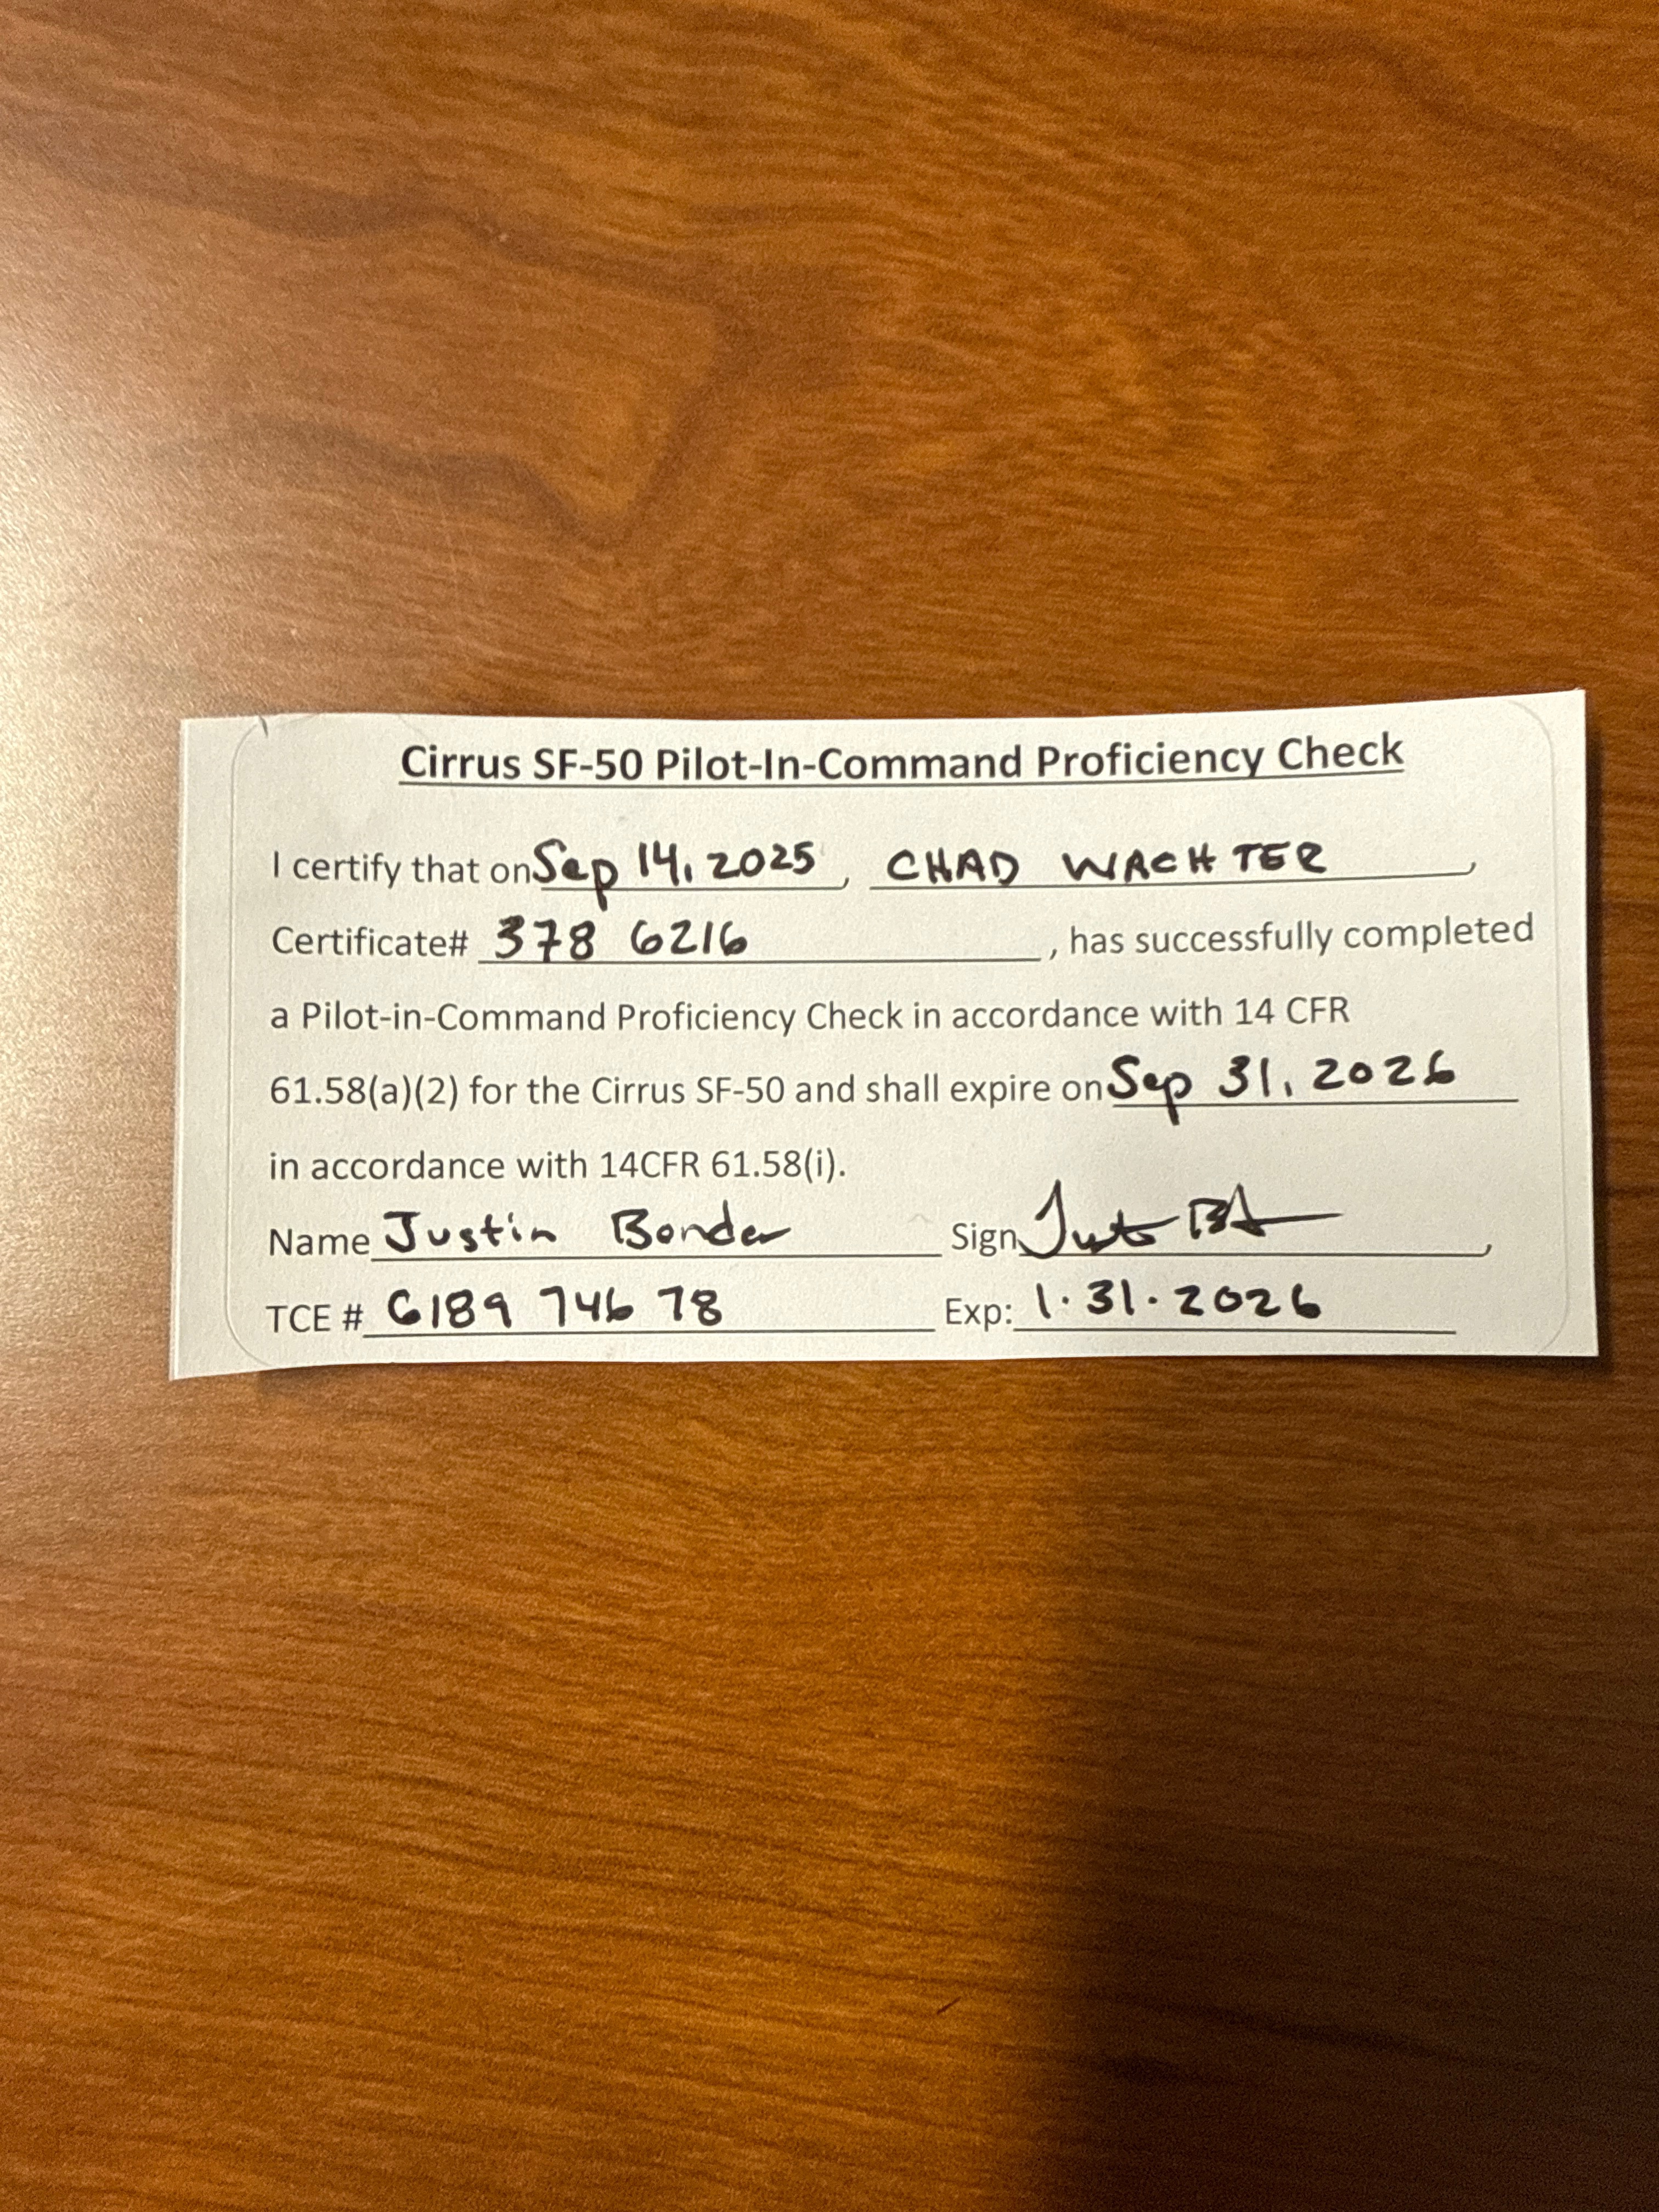 Cirrus SF-50 Pilot-In-Command Proficiency Check
I certify that on Sep 14, 2025, CHAD WACHTER,
Certificate# 378 6216, has successfully completed
a Pilot-in-Command Proficiency Check in accordance with 14 CFR
61.58(a)(2) for the Cirrus SF-50 and shall expire on Sep 31, 2026
in accordance with 14CFR 61.58(i).
Name Justin Bonder Sign Just B,
TCE # 6189 746 78 Exp: 1.31.2026